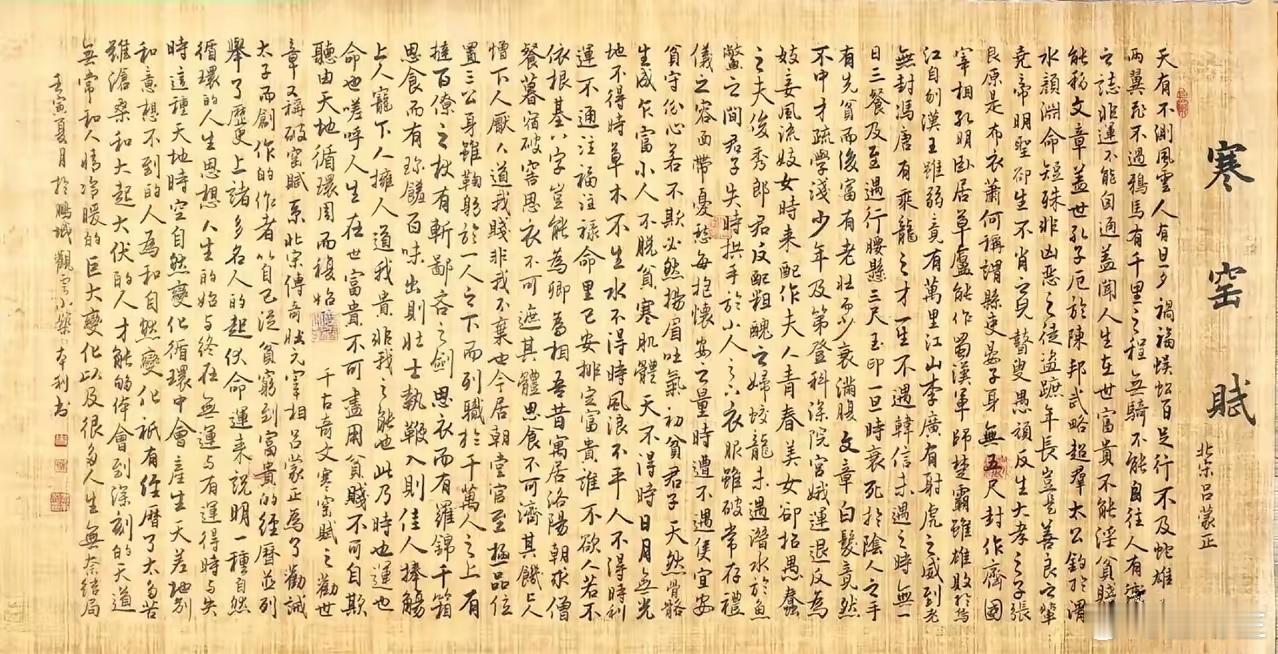 寒窑賦
北宋呂蒙正
天有不測風雲人有旦夕禍福蜈蚣百足行不及蛇雄
两翼飛不過鴉馬有千里之程無騎不能自往人有
之誌非運不能自通盖聞人生在世富貴不能淫貧賤
能移文章盖世孔子厄於陳邦武略超羣太公釣於渭
水顏淵命短殊非凶惡之徒盜蹠年長豈是善良之輩
尭帝明聖卻生不肖之兒瞽叟愚頑反生大孝之子張
良原是布衣蕭何稱謂縣吏晏子身無五尺封作齊國
宰相孔明卧居草廬能作蜀漢軍師楚霸雖雄敗於烏
江自刎漢王雖弱竟有萬里江山李廣有射虎之威到老
無封馮唐有乘龍之才一生不遇韓信未遇之時無一
日三餐及至遇行腰懸三尺玉印一旦時衰死於陰人之手
有先貧而後富有老壯而少衰滿腹文章白髮竟然
不中才疏學淺少年及第登科深院宮娥運退反為
妓妾風流妓女時来配作夫人青春美女卻招愚蠢
之夫俊秀郎君反配粗醜之婦蛟龍未遇潛水於魚
鱉之間君子失時拱手於小人之下衣服雖破常存禮
儀之容面帶憂愁每抱懷安之量時遭不遇只宜安
貧守份心若不欺必然揚眉吐氣初貧君子天然骨骼
生成乍富小人不脫貧寒肌體天不得時日月無光
地不得時草木不生水不得時風浪不平人不得時利
運不通注福注祿命里已安排定富貴誰不欲人若不
依根基八字豈能為卿為相吾昔寓居洛陽朝求僧
餐暮宿破窖思衣不可遮其體思食不可濟其饑上人
憎下人厭人道我賤非我不棄也今居朝堂官至極品位
置三公身雖鞠躬於一人之下而列職於千萬人之上有
撻百僚之杖有斬鄙吝之劍思衣而有羅錦千箱
思食而有珍饈百味出則壯士執鞭入則佳人捧觴
上人寵下人擁人道我貴非我之能也此乃時也運也
命也嗟呼人生在世富貴不可盡用貧賤不可自欺
聽由天地循環周而複始 千古奇文寒窑賦之勸世
章又稱破窑賦系北宋傳奇狀元宰相呂蒙正為了勸誡
太子而創作的作者以自己從貧窮到富貴的經曆並列
舉了歷史上諸多名人的起伏命運来說明一種自然
循環的人生思想人生的始与終在無運与有運得時与失
時這種天地時空自然變化循環中會產生天差地别
和意想不到的人為和自然變化衹有經曆了太多苦
難滄桑和大起大伏的人才能夠体會到深刻的天道
無常和人情冷暖的巨大變化以及很多人生無奈結局
壬寅夏月於鵬城觀雲小築本利書